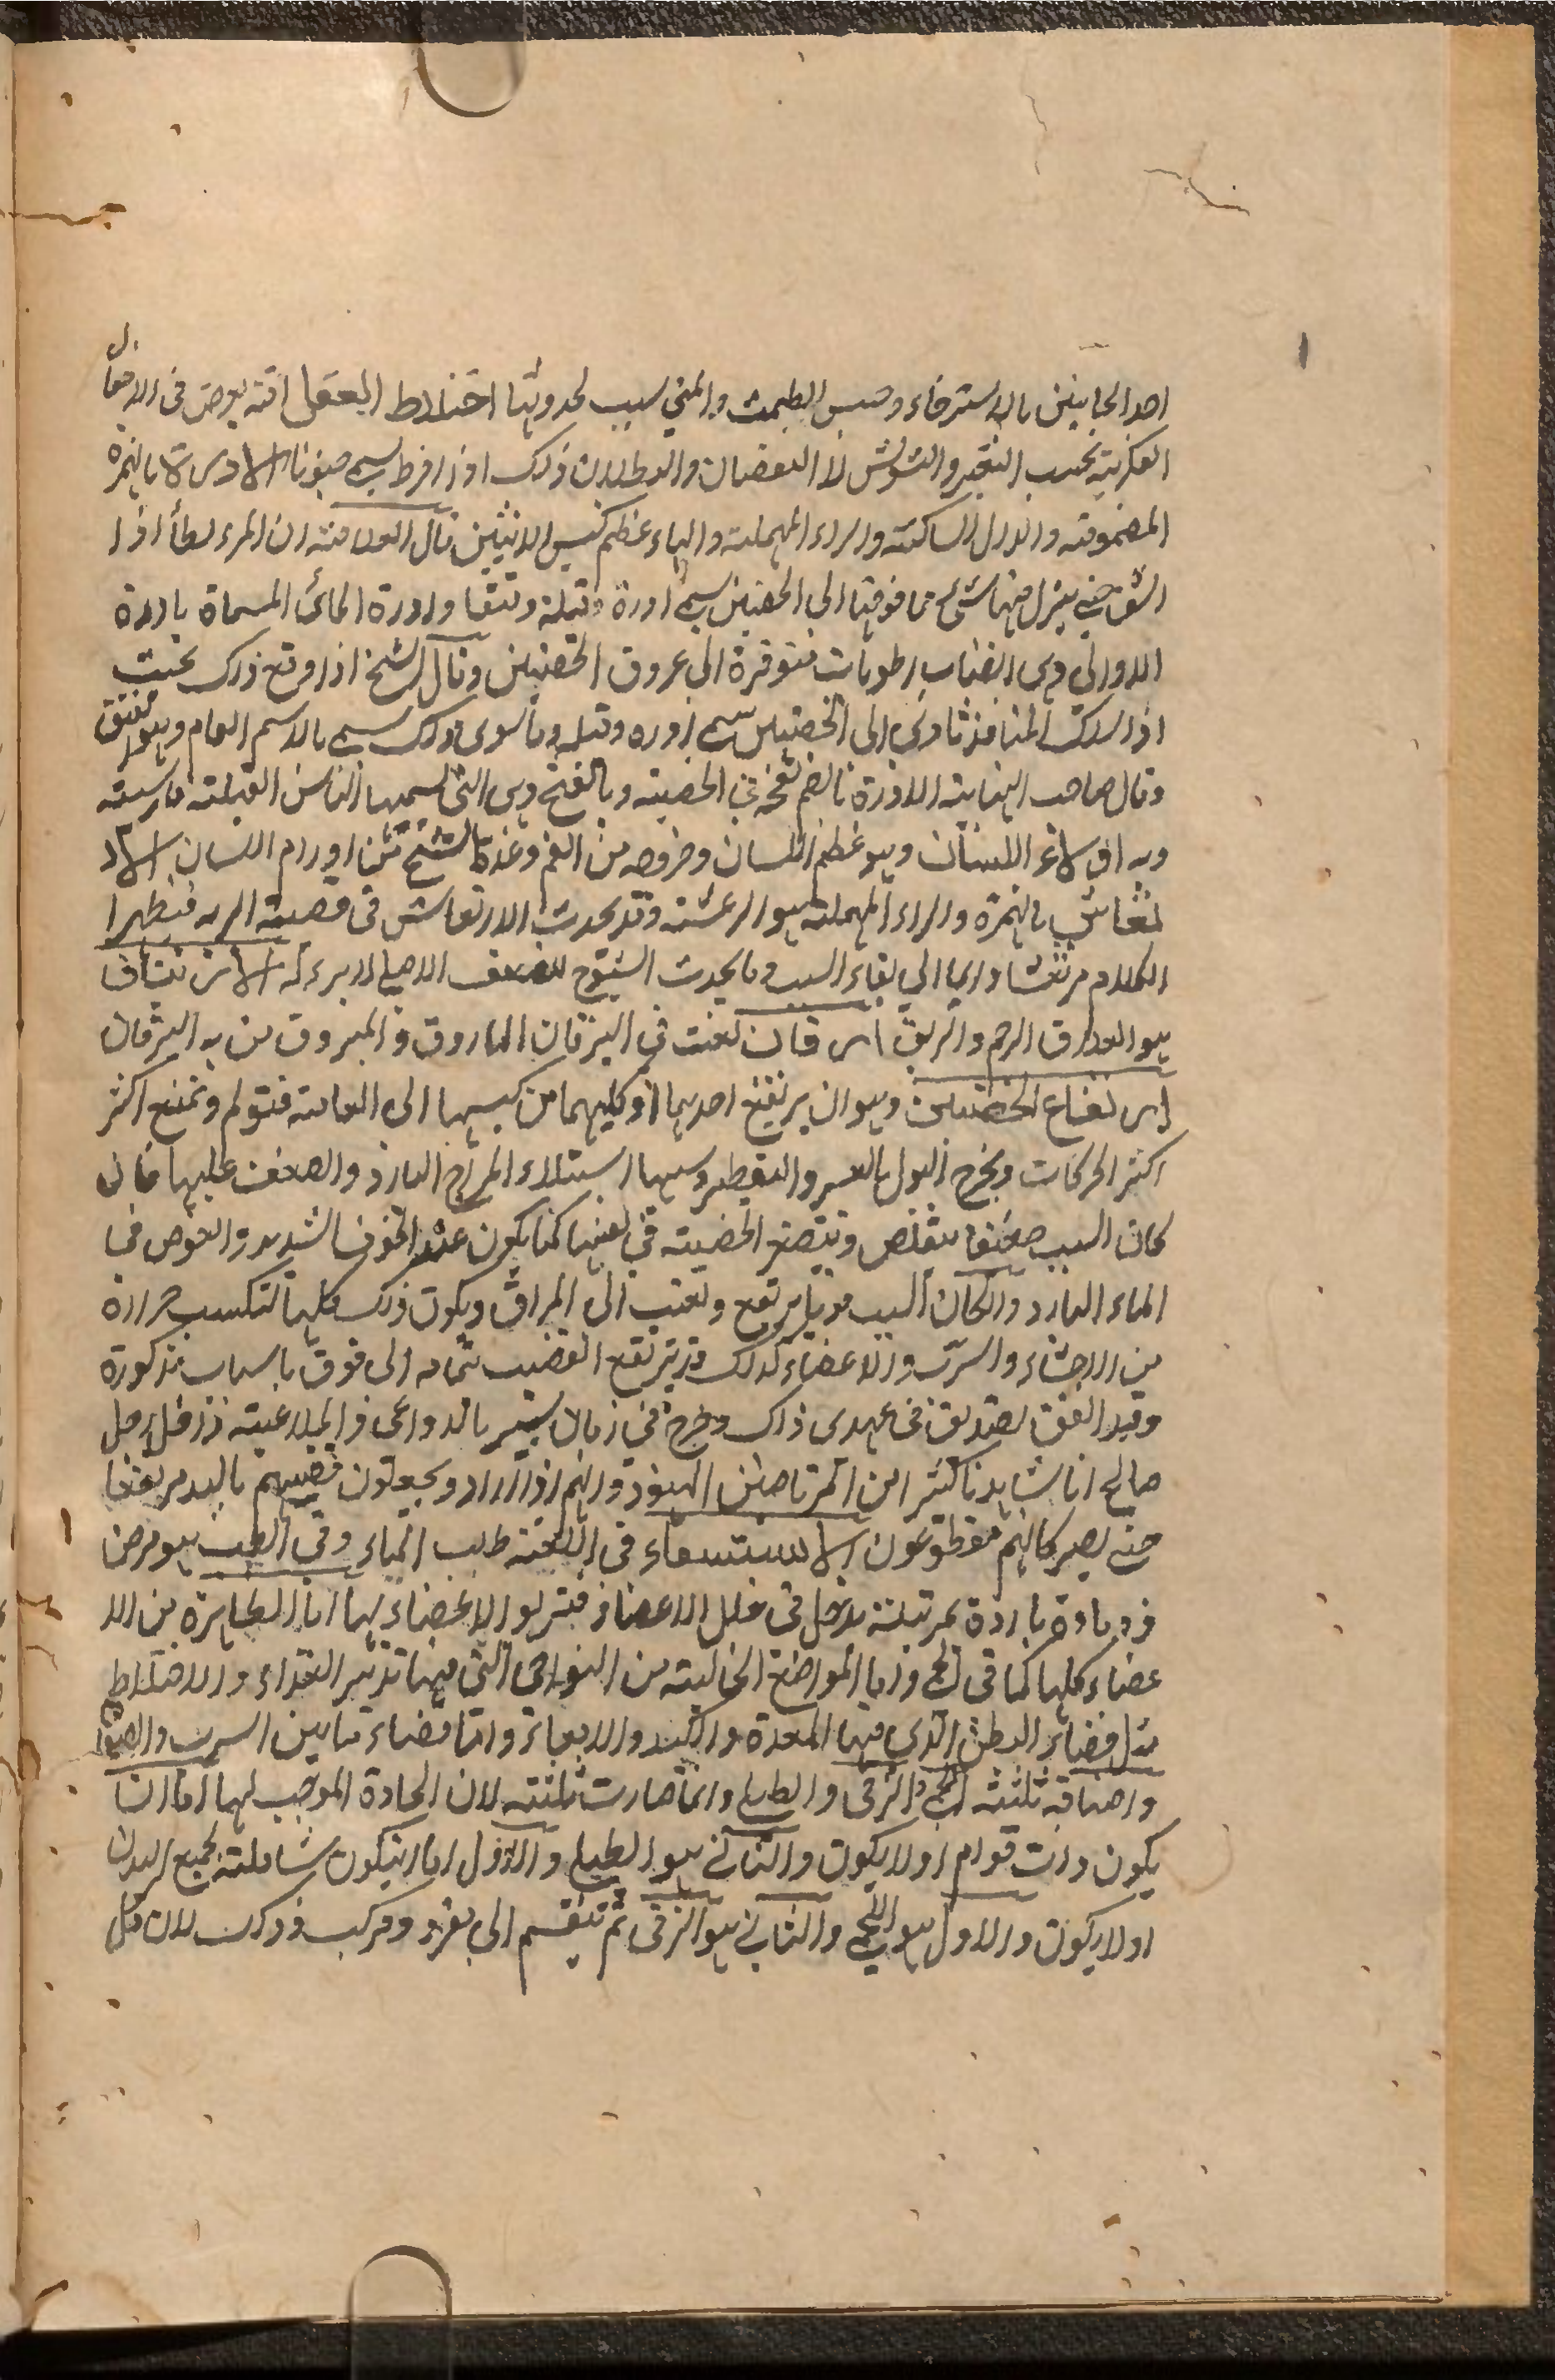 احد الجانبين بالاسترخاء وحبس الطمث والمني سبب لحدوثها اختلاط العقل افة يعرض فى الافعال
الفكرية بحسب التغير والتشوش لا النقصان والبطلان ذلك اذا افرط يسمى جنونا الادرة بالهمزة
المضمومة والدال الساكنة والراء المهملة والهاء عظم كيس الانثيين قال العلامة ان المراء لطأ اذا
انشق حتى ينزل منها شئ مما فوقها الى الخصيتين يسمى ادرة وقيلة وفتقا وادرة الماء المسماة بادرة
الدوالى وهى انصباب رطوبات متوفرة الى عروق الخصيتين وقال الشيخ اذا وقع ذلك بحيث
اذا سلك المنافذ تادى الى الخصيتين سمى ادره وقيله وما سوى ذلك يسمى بالاسم العام وهو الفتق
وقال صاحب النهاية الادرة بالضم نفخة فى الخصية وبالفتح وهى التى تسميها الناس القيلة
اللسان وهو عظم اللسان وخروجه من الفم وعده الشيخ من اورام اللسان الار
تعاش بالهمزة والراء المهملة هو الرعشة وقد يحدث الارتعاش فى قصبة الريه فيظهر
الكلام مرتعشا الى بقاء السبب وما يحدث الشيوخ لضعف الاصلى لا برء له
هو الرحم والربق ارقان لغت فى اليرقان الماروق والمبروق من به اليرقان
ارتفاع الخصيتين وهو ان يرتفع احديهما او كليهما من كيسهما الى العانة فتولم وتمنع اكثر
اكثر الحركات ويخرج البول بالعسر والتقطير وسببها استيلاء المزاج البارد والضعف عليها فان
كان السبب ضعيفا يتقلص ويتصغر الخصية فى نفسها كما يكون عند الخوف الشديد والغوص فى
الماء البارد وان كان السبب قويا يرتفع وتغيب الى المراق ويكون ذلك كلها لتكسب حرارة
من الاحشاء والسرت والاعضاء كذلك قد يرتفع القضيب بتمامه الى فوق باسباب مذكورة
وقد اتفق لصديق فى عهدى ذلك وخرج فى زمان يسير بالدواعى والملاعبة
صالح انا شاهدنا كثيرا من المرتاضين الهنود وانهم اذا اراد ويجعلون قضيبهم باليد مرتفعا
حتى يصير كانهم مقطوعون الاستسقاء فى اللغة طلب الماء وفى الطب هو مرض
ذو مادة باردة غريبة تدخل فى خلل الاعضاء فتربو الاعضاء بها اما الظاهرة من الا
عضاء كلها كما فى اللحمى واما المواضع الخالية من النواحى التى فيها تدبير الغذاء والاخلاط
مثل فضاء البطن الذى فيها المعدة والكبد والامعاء واما فضاء ما بين السرب والصفا
واصنافه ثلثة اللحمى والزقى والطبلى وانما صارت ثلثة لان المادة الموجب لها اما ان
يكون ذات قوام اولا يكون والثانى هو الطبلى والاول اما ان يكون شاملة لجميع البدن
اولا يكون والاول هو اللحمى والثانى هو الزقى ثم تنقسم الى مفرد ومركب وذلك لان كل